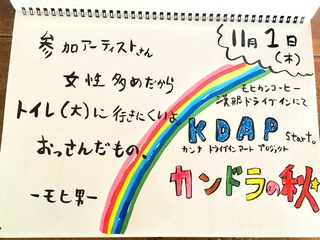 参加アーティストさん
女性多めだから
トイレ(大)に行きにくいよ
おっさんだもの。
ーモヒ男ー
11月1日
(木)
モヒカンコーヒー
漢那ドライブインにて
KDAP start。
カンナ ドライブインアート プロジェクト
カンドラの秋